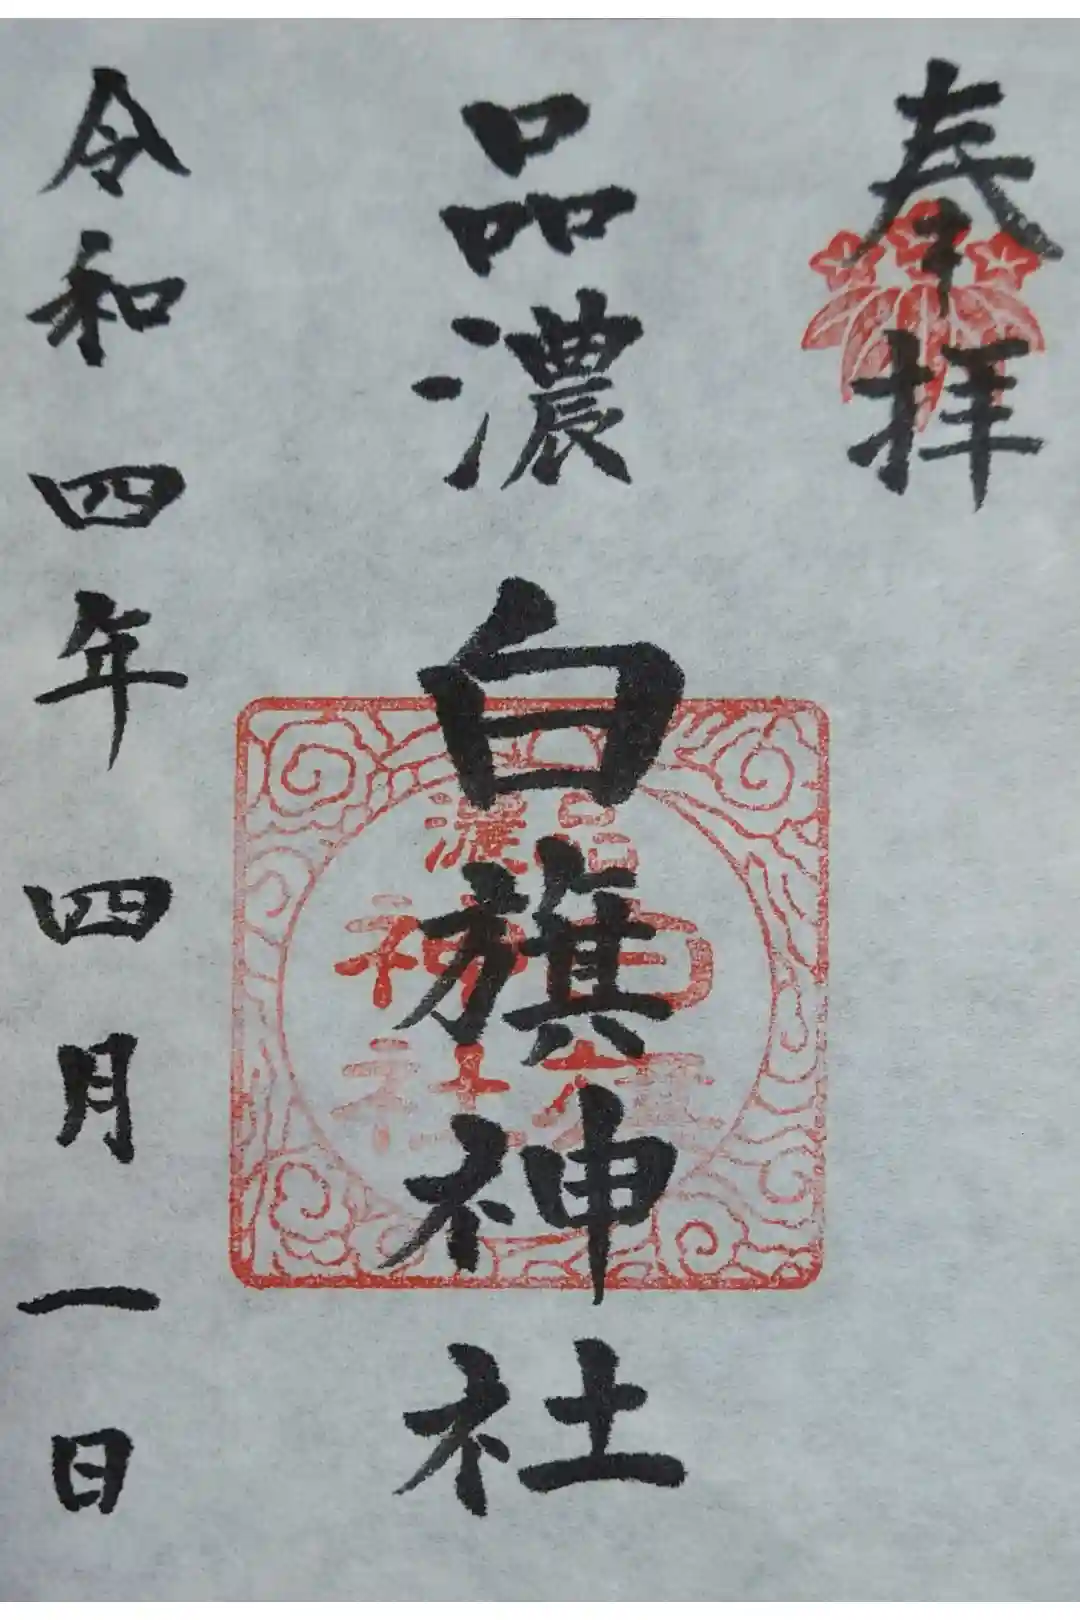 奉拝
品濃
白旗神社
令和四年四月一日
品濃
白旗
神社